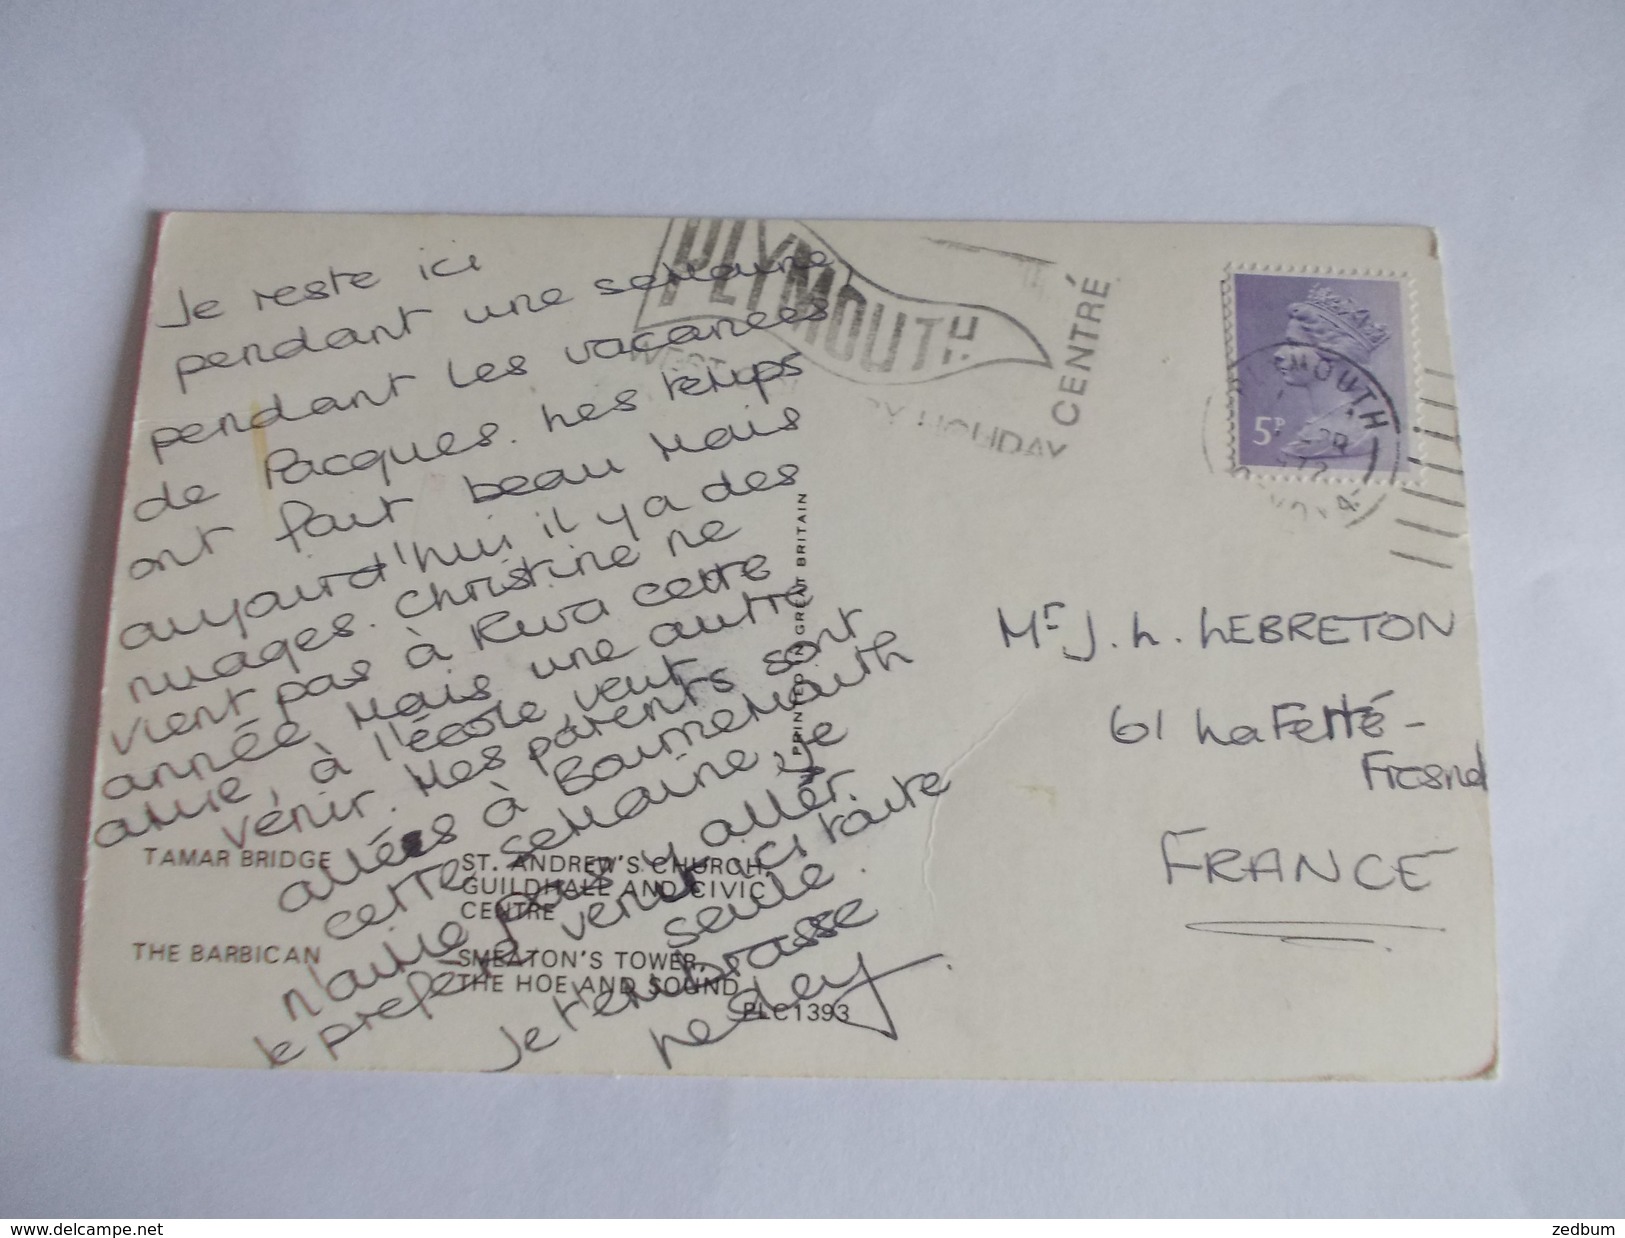 Je reste ici
pendant une semaine,
pendant les vacances
de Pacques. Les temps
ont fait beau mais
aujourd'hui il y a des
nuages. Christine ne
vient pas à cette
année mais une autre
amie, à l'école veut
venir. Mes parents sont
allées à Bournemouth
cette semaine je
n'aime pas y aller.
Je prefere venir ici toute
seule.
Je t'embrasse
Lesley
TAMAR BRIDGE
ST. ANDREW'S CHURCH,
GUILDHALL AND CIVIC
CENTRE
THE BARBICAN
SMEATON'S TOWER,
THE HOE AND SOUND
PLC1393
PRINTED IN GREAT BRITAIN
PLYMOUTH
WEST
HOLIDAY
CENTRE
5P
PLYMOUTH
APR
Mr J. L. LEBRETON
61 La Ferté-
Fresnel
FRANCE
www.delcampe.net
zedbum